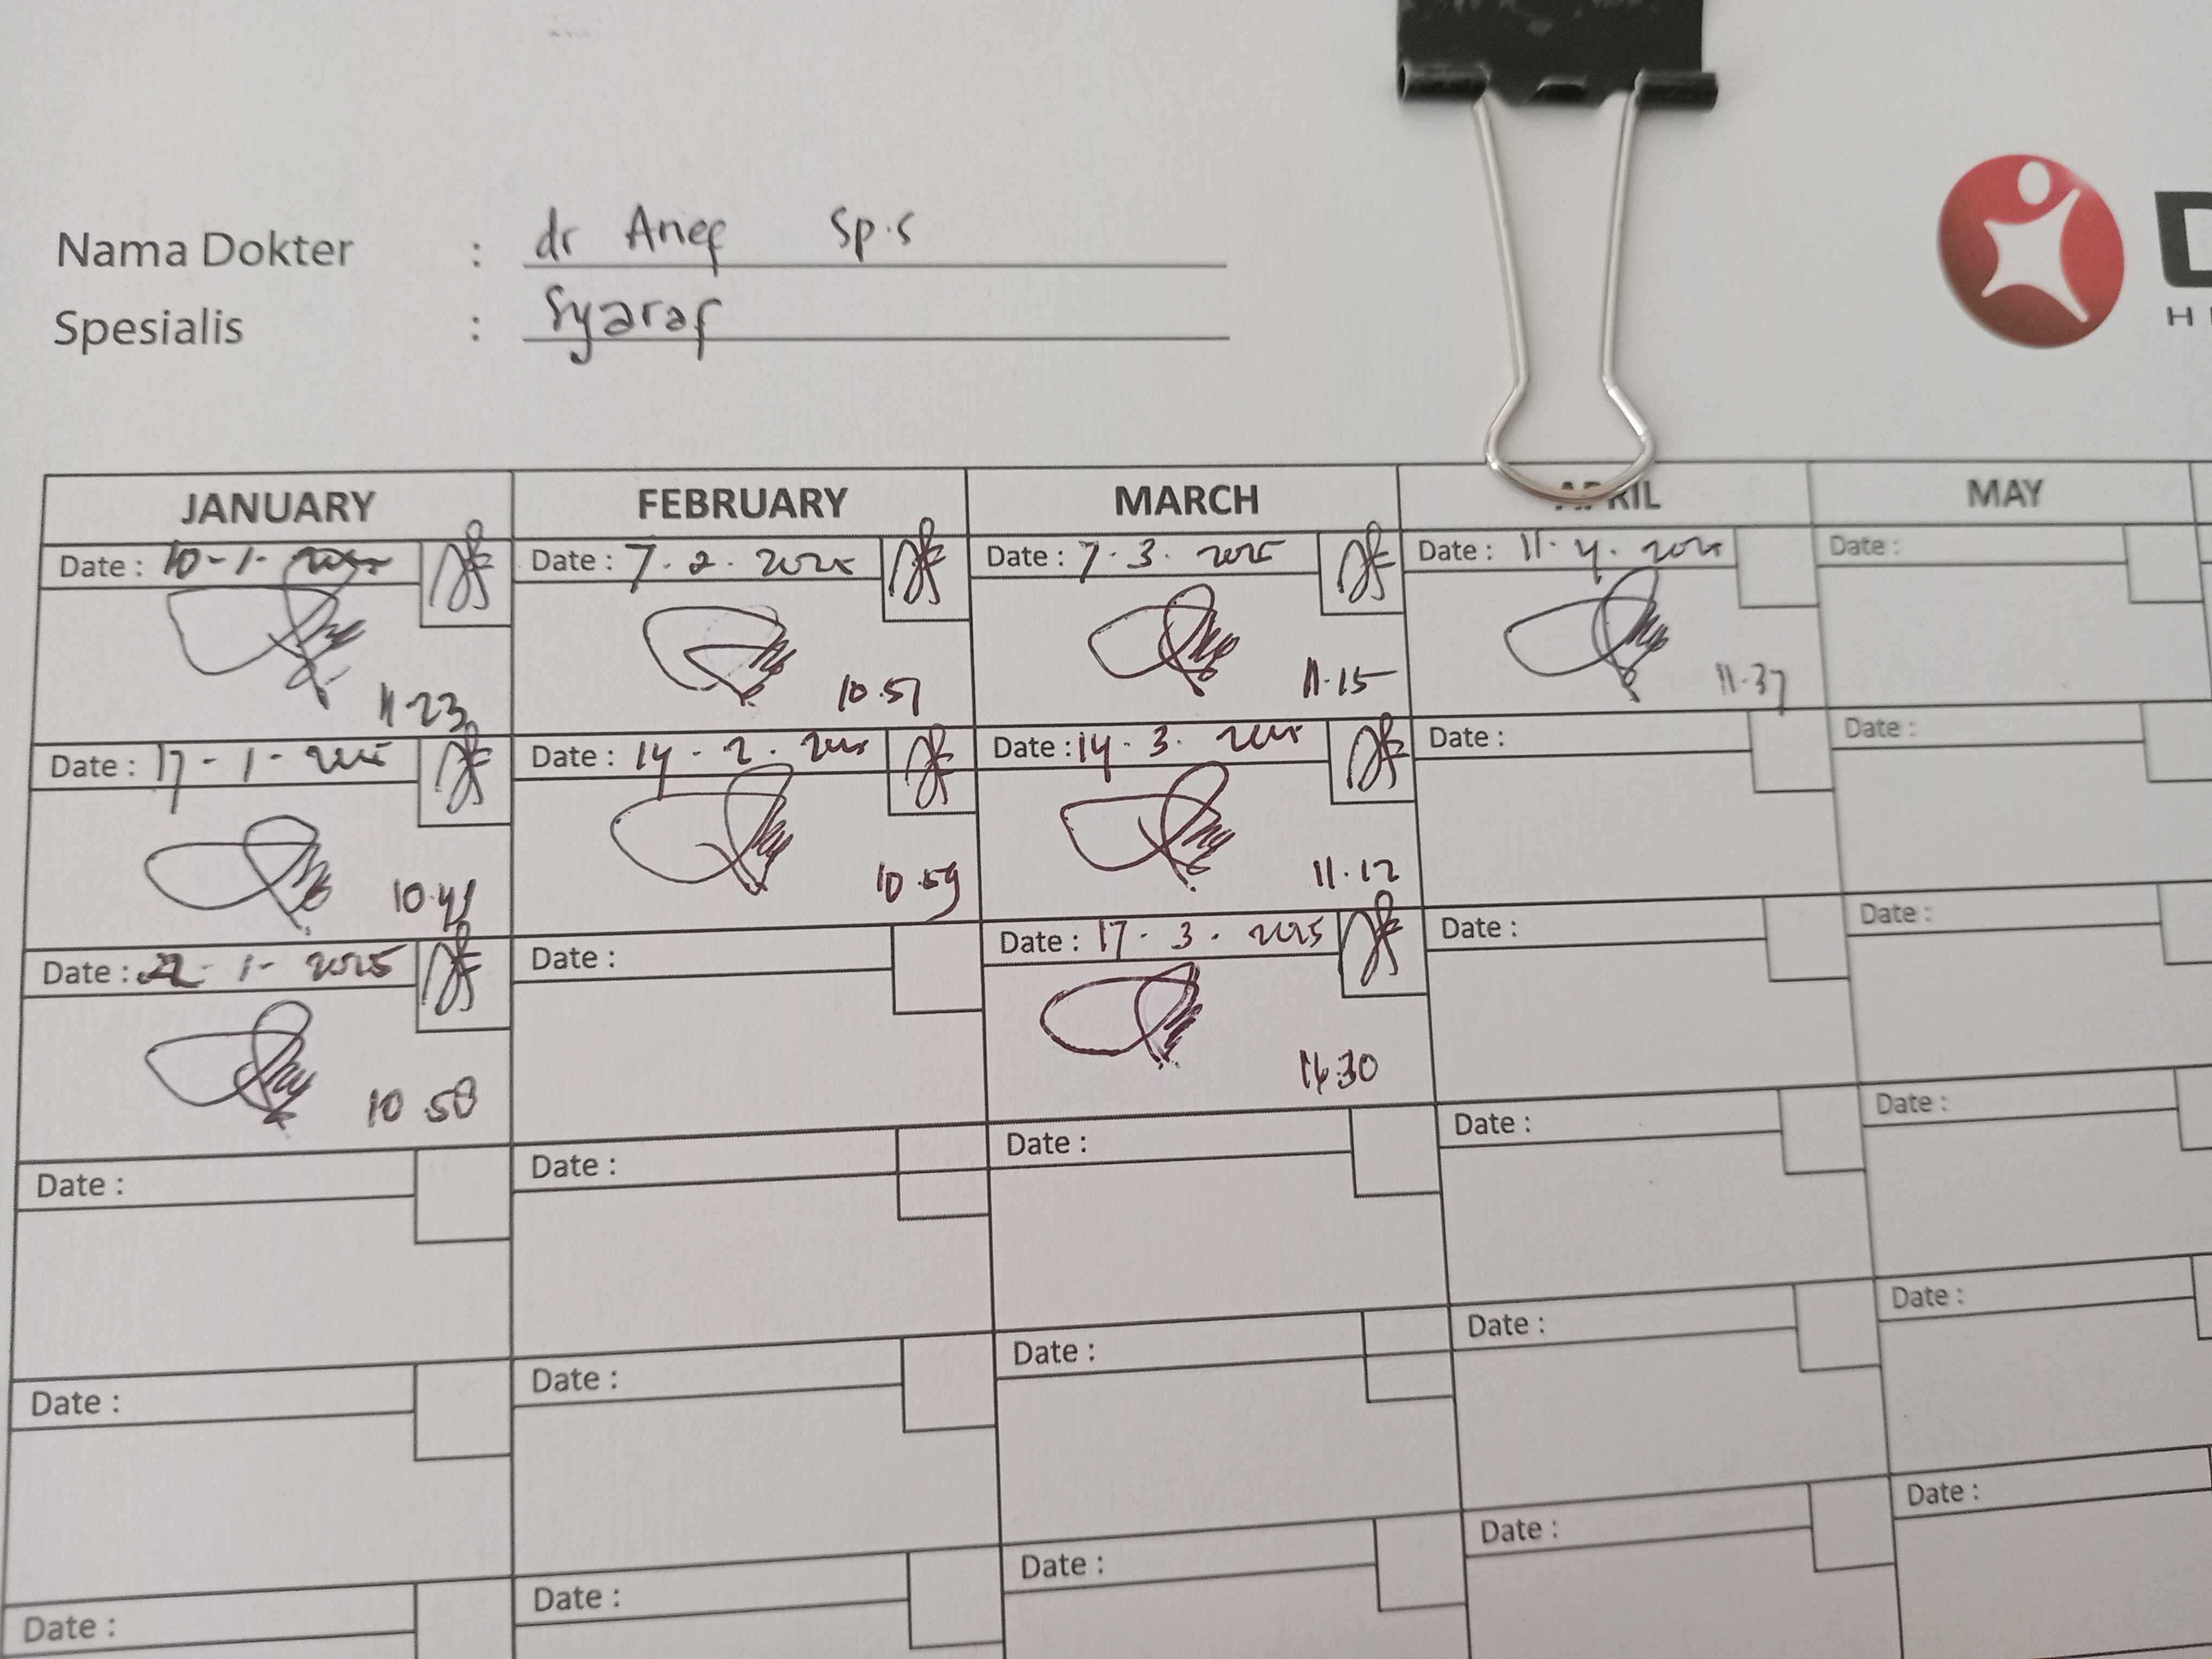 Nama Dokter : dr Anef Sp.S
Spesialis : Syaraf
D
H
JANUARY FEBRUARY MARCH APRIL MAY
Date : 10-1- Date : 7.2.2025 Date : 7.3.2025 Date : 11.4.2025 Date :
11.23 10.51 11.15 11.37
Date : 17-1-2025 Date : 14-2.2025 Date : 14.3.2025 Date : Date :
10.59 11.12
Date : 22-1-2025 Date : Date : 17.3.2025 Date : Date :
10 58
Date : Date : Date : Date : Date :
Date : Date : Date : Date : Date :
Date : Date : Date : Date : Date :